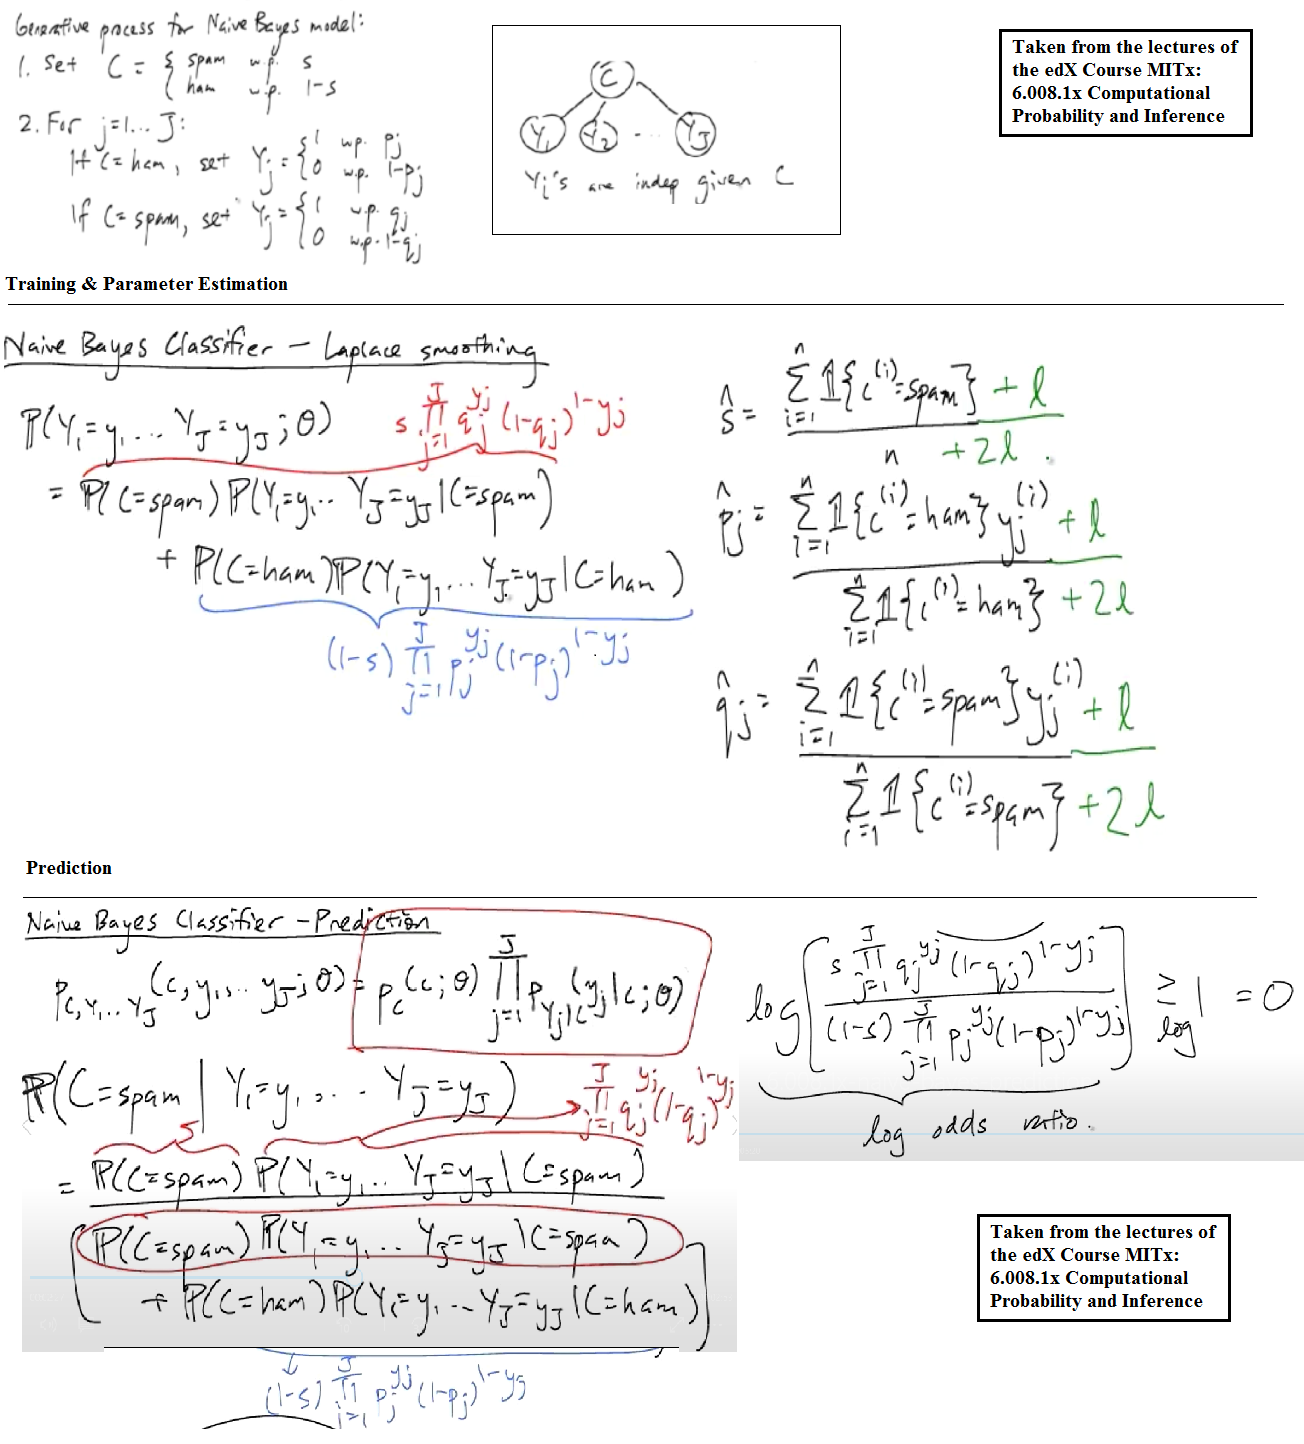 Generative process for Naive Bayes model:
1. Set C = { spam w.p. s
ham w.p. 1-s
2. For j=1... J:
If C = ham, set Yj = { 1 w.p. pj
0 w.p. 1-pj
If C = spam, set Yj = { 1 w.p. qj
0 w.p. 1-qj
C
Y1 Y2 ... YJ
Yi's are indep given C
Taken from the lectures of
the edX Course MITx:
6.008.1x Computational
Probability and Inference
Training & Parameter Estimation
Naive Bayes Classifier – Laplace smoothing
ℙ(Y1=y1 ... YJ=yJ; θ)
s ∏_{j=1}^{J} qj^{yj} (1-qj)^{1-yj}
= ℙ(C=spam) ℙ(Y1=y1 ... YJ=yJ | C=spam)
+ ℙ(C=ham) ℙ(Y1=y1, ... YJ=yJ | C=ham)
(1-s) ∏_{j=1}^{J} pj^{yj} (1-pj)^{1-yj}
ŝ = ∑_{i=1}^{n} 𝟙{c^{(i)}=spam} + l
n + 2l
p̂j = ∑_{i=1}^{n} 𝟙{c^{(i)}=ham} yj^{(i)} + l
∑_{i=1}^{n} 𝟙{c^{(i)}=ham} + 2l
q̂j = ∑_{i=1}^{n} 𝟙{c^{(i)}=spam} yj^{(i)} + l
∑_{i=1}^{n} 𝟙{c^{(i)}=spam} + 2l
Prediction
Naive Bayes Classifier – Prediction
p_{C,Y1...YJ}(c, y1, ... yJ; θ) = p_C(c; θ) ∏_{j=1}^{J} p_{Yj|C}(yj|c; θ)
ℙ(C=spam | Y1=y1, ... YJ=yJ)
∏_{j=1}^{J} qj^{yj} (1-qj)^{1-yj}
s
= ℙ(C=spam) ℙ(Y1=y1, ... YJ=yJ | C=spam)
ℙ(C=spam) ℙ(Y1=y1, ... YJ=yJ | C=spam)
+ ℙ(C=ham) ℙ(Y1=y1 ... YJ=yJ | C=ham)
(1-s) ∏_{j=1}^{J} pj^{yj} (1-pj)^{1-yj}
log [ s ∏_{j=1}^{J} qj^{yj} (1-qj)^{1-yj}
(1-s) ∏_{j=1}^{J} pj^{yj} (1-pj)^{1-yj} ] ≥ log 1 = 0
log odds ratio.
Taken from the lectures of
the edX Course MITx:
6.008.1x Computational
Probability and Inference